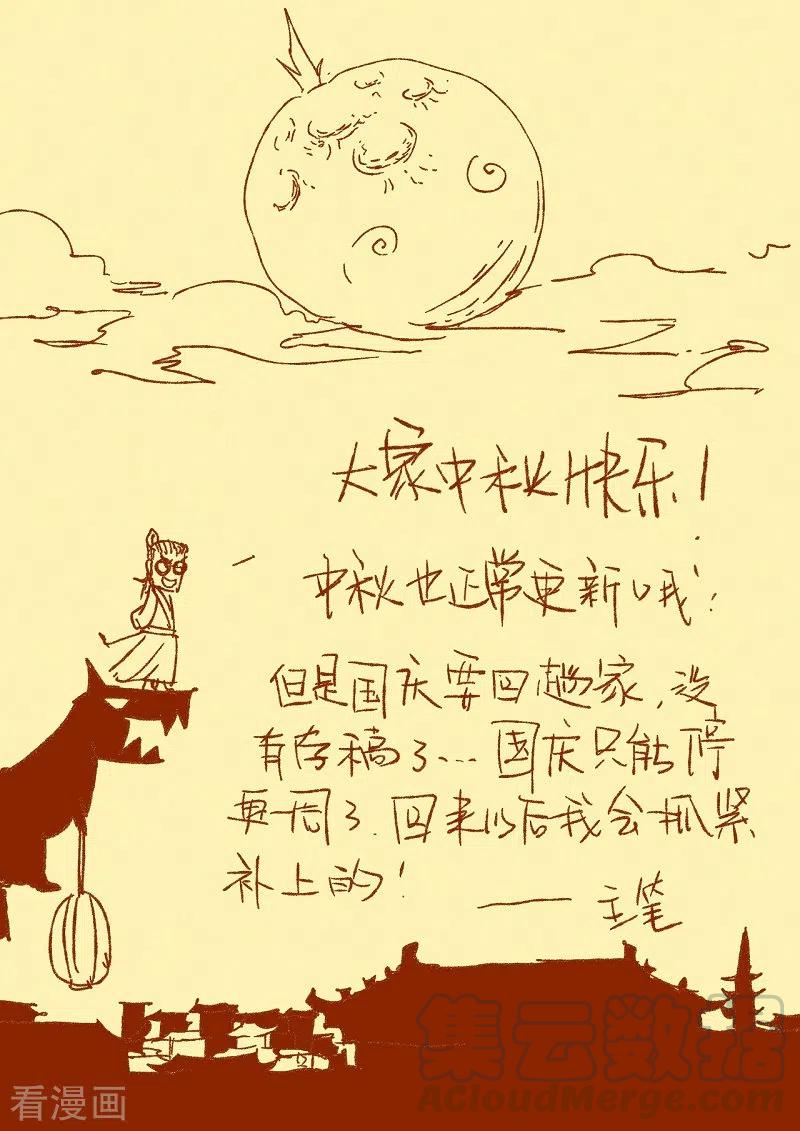 大家中秋快乐！
中秋也正常更新哦！
但是国庆要回趟家，没
有存稿了...国庆只能停
更一周了.回来以后我会抓紧
补上的！
——主笔
集云数据
ACloudMerge.com
看漫画